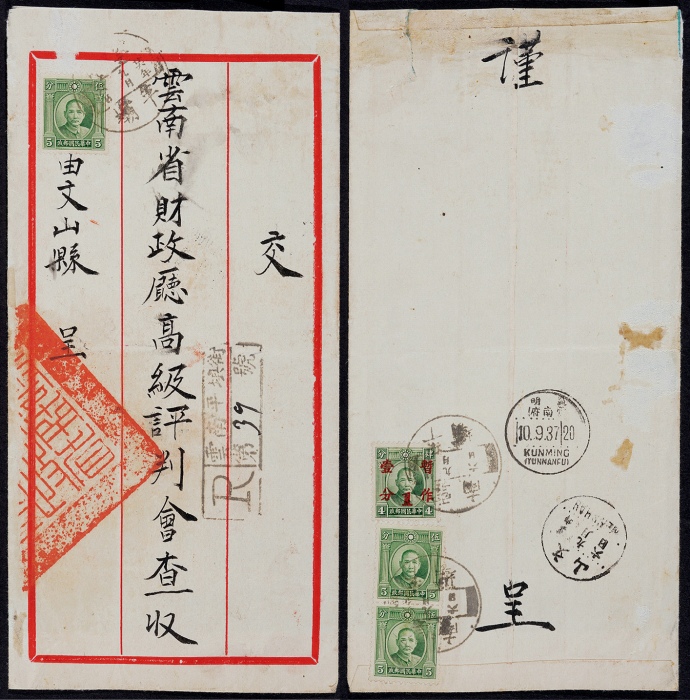 交
雲南省財政廳高級評判會查收
由文山縣 呈
分 伍
5 5
中華民國郵政
雲南平壩街
R 第 39 號
謹
呈
暫作
壹分
1
4 4
中華民國郵政
分 伍
5 5
中華民國郵政
分 伍
5 5
中華民國郵政
10.9.37 20
KUNMING
(YUNNANFU)
文山